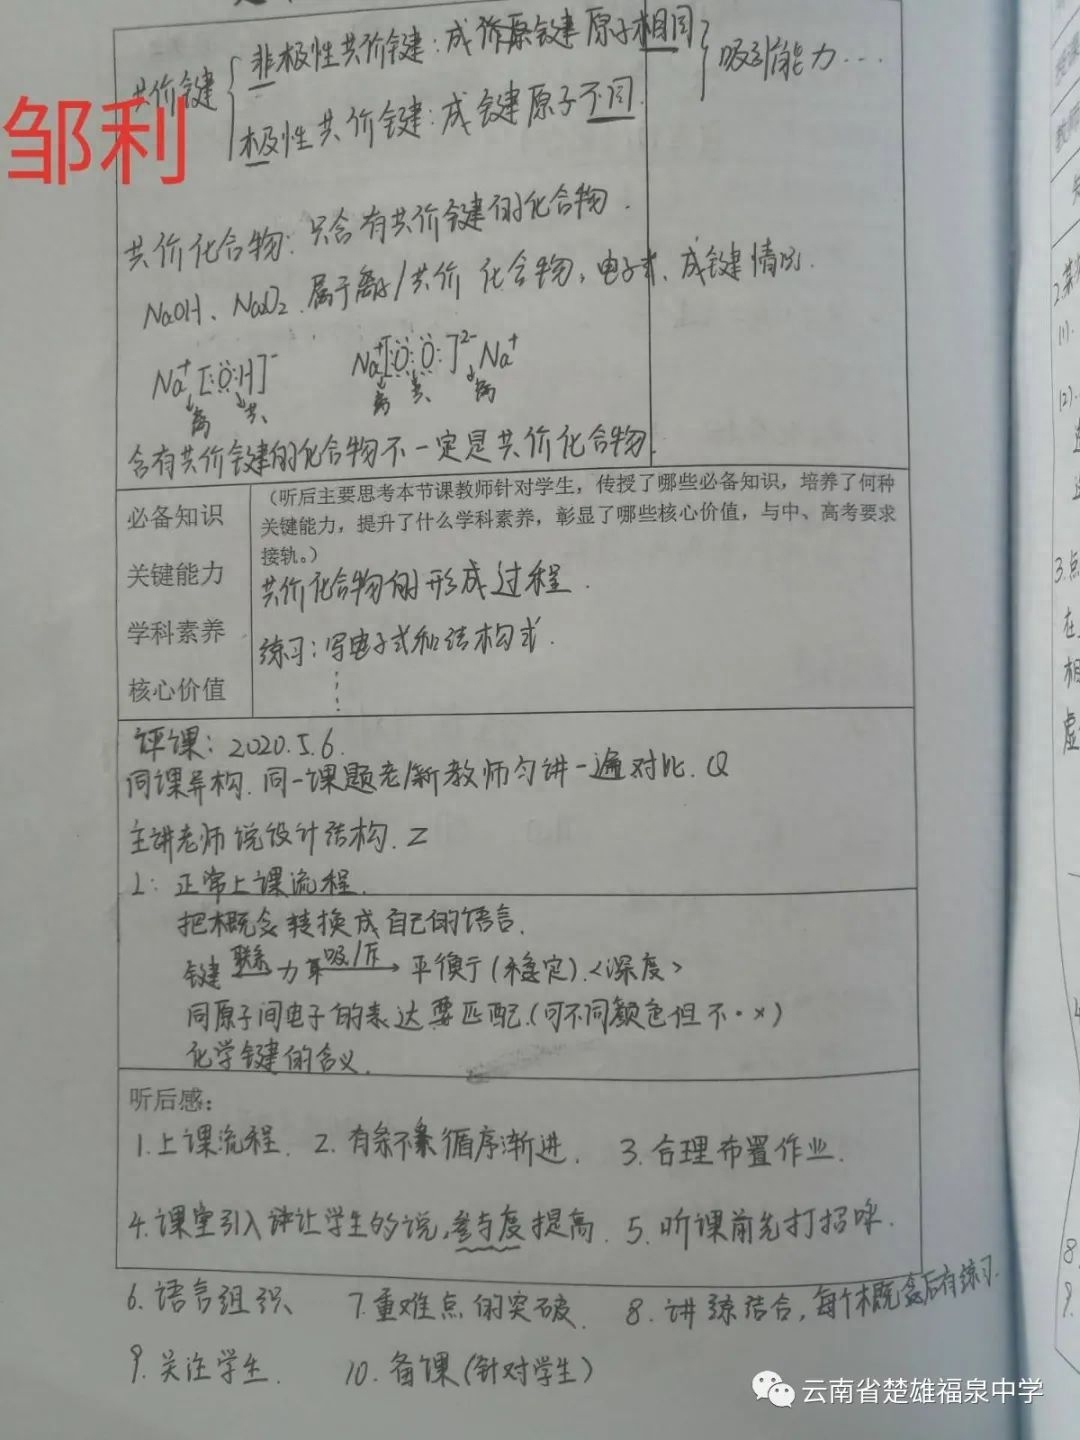 共价键 { 非极性共价键：成价原键原子相同 } 吸引能力...
极性共价键：成键原子不同
邹利
共价化合物：只含有共价键的化合物.
NaOH、Na₂O₂.属于离子/共价化合物，电子式、成键情况.
Na⁺[:Ö:H]⁻ Na⁺[:Ö:Ö:]²⁻Na⁺
离 共 离 共 离
含有共价键的化合物不一定是共价化合物.
必备知识
关键能力
学科素养
核心价值
（听后主要思考本节课教师针对学生，传授了哪些必备知识，培养了何种
关键能力，提升了什么学科素养，彰显了哪些核心价值，与中、高考要求
接轨。）
共价化合物的形成过程.
练习：写电子式和结构式.
评课：2020.5.6.
同课异构.同一课题老/新教师匀讲一遍对比.Q
主讲老师说设计结构.Z
1：正常上课流程.
把概念转换成自己的语言.
键 联系→ 力 吸/斥→ 平衡于(稳定).<深度>
同原子间电子的表达要匹配.(可不同颜色但不·×)
化学键的含义.
听后感：
1.上课流程. 2.有条不紊循序渐进. 3.合理布置作业.
4.课堂引入 让学生的说,参与度提高. 5.听课前先打招呼.
6.语言组织 7.重难点的突破. 8.讲练结合,每个概念后有练习.
9.关注学生. 10.备课(针对学生)
云南省楚雄福泉中学